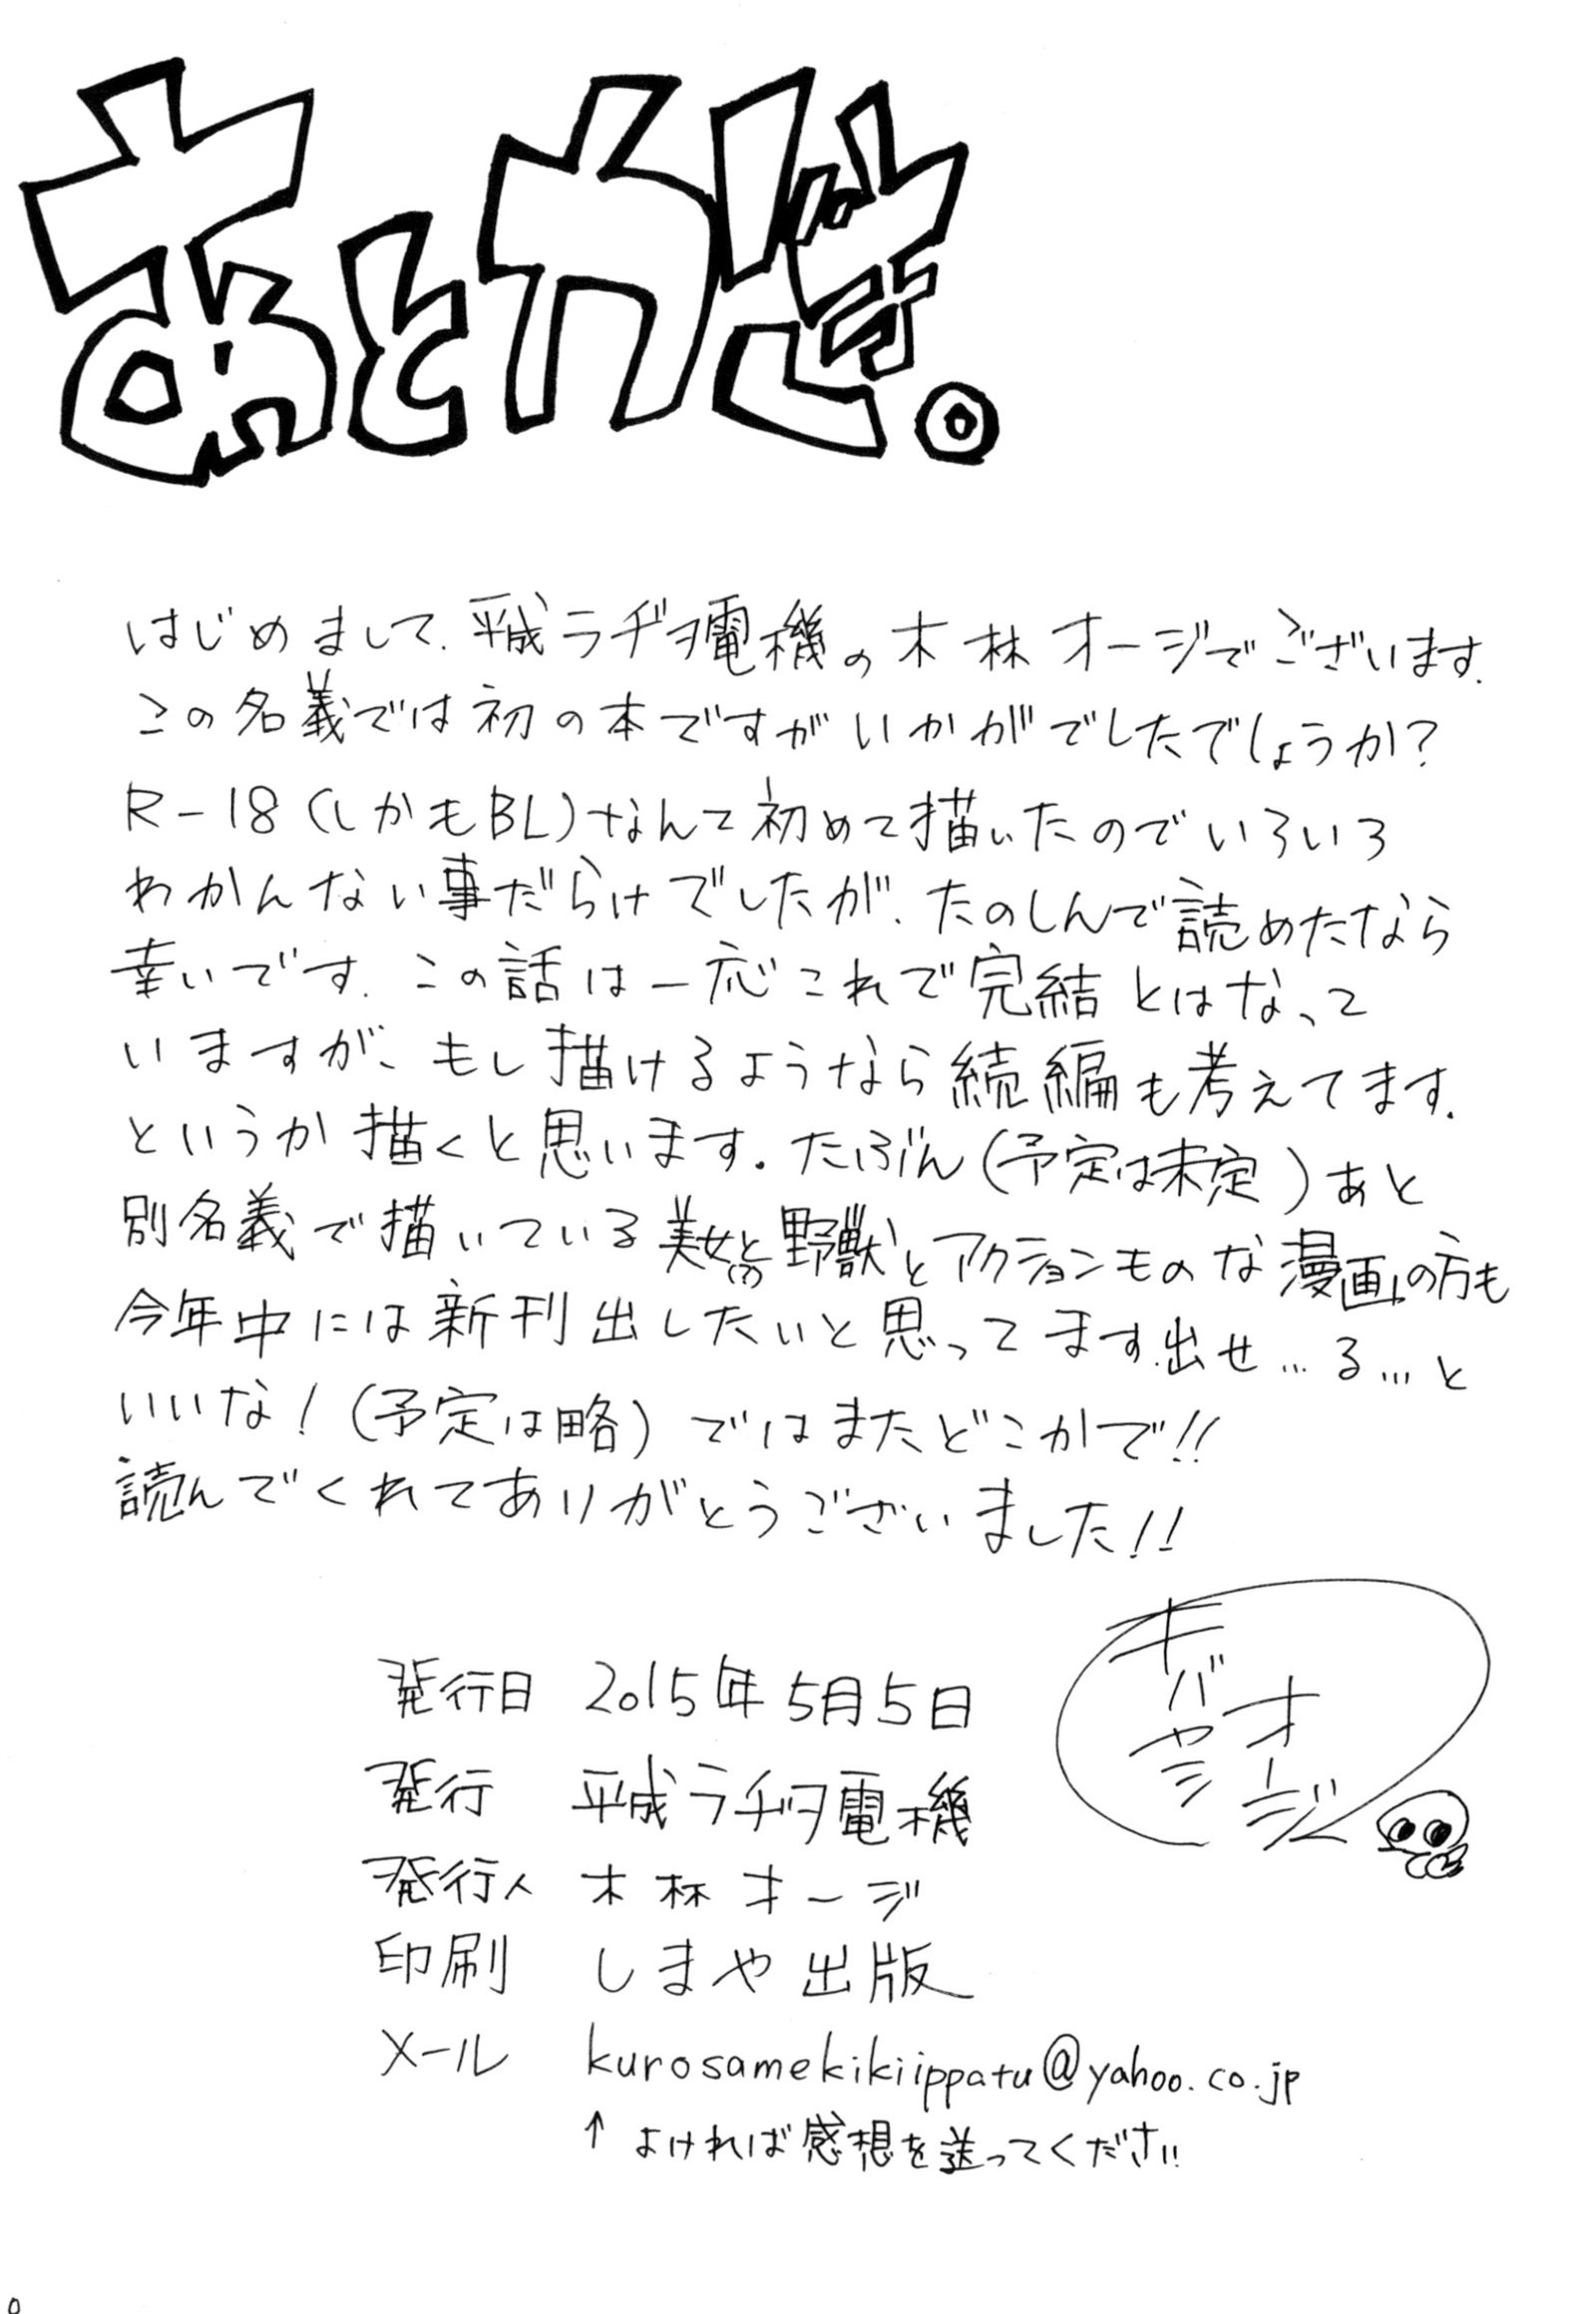 あとがき。
はじめまして、平成ラヂヲ電機の木林オージでございます。
この名義では初の本ですがいかがでしたでしょうか?
R-18(しかもBL)なんて初めて描いたのでいろいろ
わかんない事だらけでしたが、たのしんで読めたなら
幸いです。この話は一応これで完結とはなって
いますが、もし描けるようなら続編も考えてます。
というか描くと思います。たぶん(予定は未定)あと
別名義で描いている美女と(の)野獣とアクションものな漫画の方も
今年中には新刊出したいと思ってます。出せ…る…と
いいな!(予定は略)ではまたどこかで!!
読んでくれてありがとうございました!!
キバヤシ
オージ
発行日 2015年5月5日
発行 平成ラヂヲ電機
発行人 木林オージ
印刷 しまや出版
メール kurosamekikiippatu@yahoo.co.jp
↑よければ感想を送ってください!